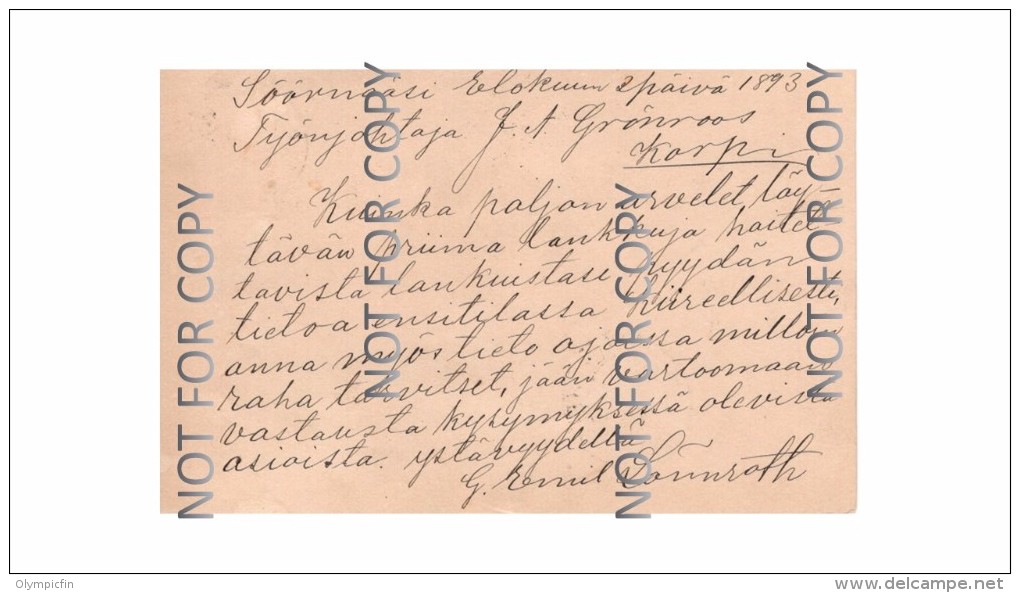 Söörnääsi Elokuun 2 päivä 1893
Työnjohtaja J. A. Grönroos
Korpi
Kuinka paljon arvelet täy-
tävän priima lankkuja haitet-
tavista lankuistasi pyydän
tietoa ensitilassa kiireellisesti,
anna myös tieto ajoissa milloin
raha tarvitset, jään vartoomaan
vastausta kysymyksessä olevista
asioista. ystävyydellä
G. Emil Lönnroth
NOT FOR COPY
NOT FOR COPY
NOT FOR COPY
NOT FOR COPY
Olympicfin
www.delcampe.net